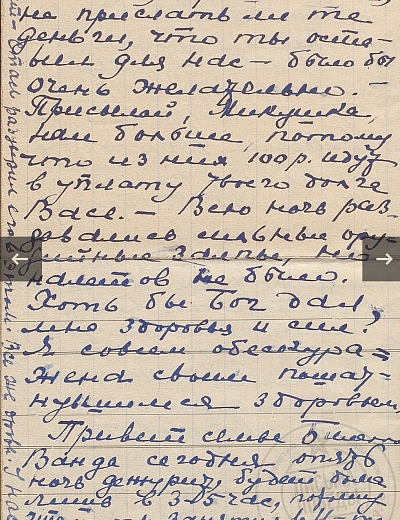 не прислать ли те
деньги, что ты оста-
вил для нас — было бы
очень желательно. —
Присылай, Микушка,
нам больше, потому
что из них 100 р. идут
в уплату твоего долга
Васе. — Всю ночь раз-
давались сильные ору-
дийные залпы, но
налетов не было.
Хоть бы Бог дал
мне здоровья и сил!
Я совсем обескура-
жена своим пошат-
нувшимся здоровьем.
Привет семье
Ванда сегодня опять
ночь дежурит, будет дома
лишь в 3-5 час, потому
что